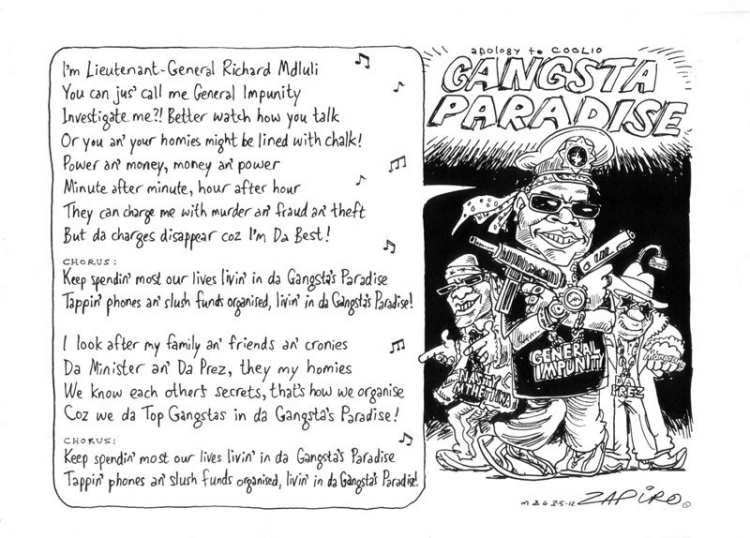 apology to COOLIO
GANGSTA
PARADISE
I'm Lieutenant-General Richard Mdluli
You can jus' call me General Impunity
Investigate me?! Better watch how you talk
Or you an' your homies might be lined with chalk!
Power an' money, money an' power
Minute after minute, hour after hour
They can charge me with murder an' fraud an' theft
But da charges disappear coz I'm Da Best!
CHORUS:
Keep spendin' most our lives livin' in da Gangsta's Paradise
Tappin' phones an' slush funds organised, livin' in da Gangsta's Paradise!
I look after my family an' friends an' cronies
Da Minister an' Da Prez, they my homies
We know each other's secrets, that's how we organise
Coz we da Top Gangstas in da Gangsta's Paradise!
CHORUS:
Keep spendin' most our lives livin' in da Gangsta's Paradise
Tappin' phones an' slush funds organised, livin' in da Gangsta's Paradise!
GENERAL
IMPUNITY
DA
PREZ
M&G 3-5-12 ZAPIRO ©